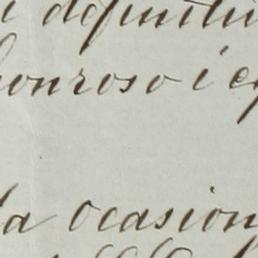 i definitiv
honroso i eq
la ocasion